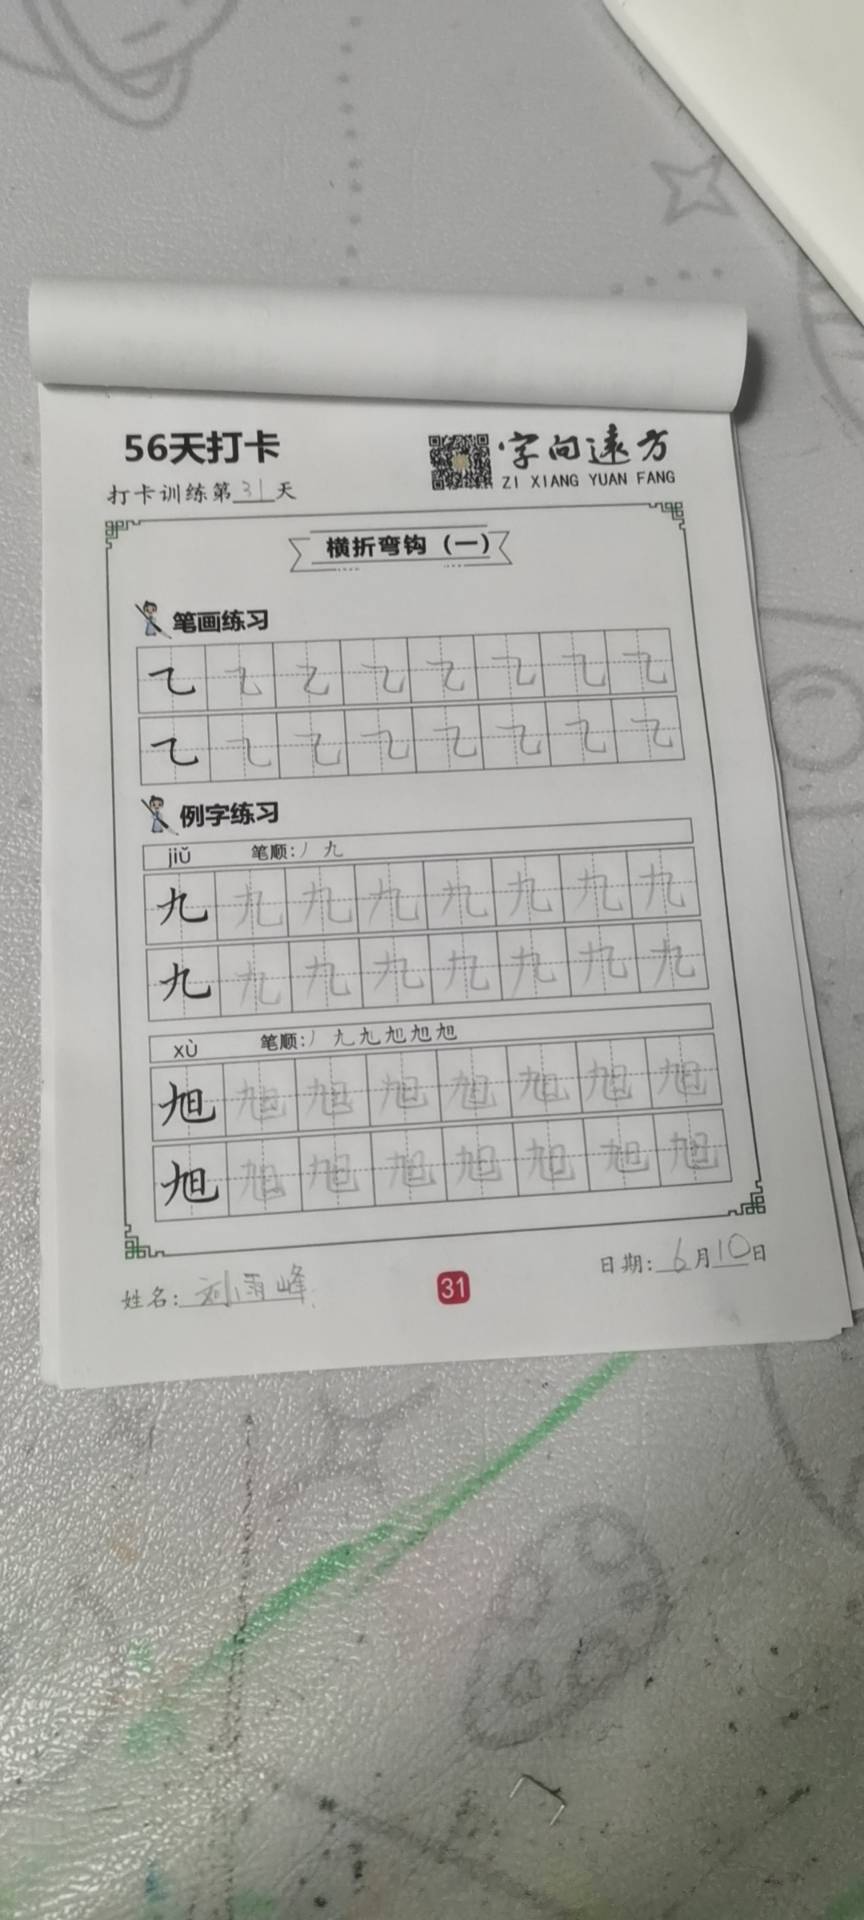 56天打卡
字向远方
ZI XIANG YUAN FANG
打卡训练第31天
横折弯钩（一）
笔画练习
㇈ ㇈ ㇈ ㇈ ㇈ ㇈ ㇈ ㇈
㇈ ㇈ ㇈ ㇈ ㇈ ㇈ ㇈ ㇈
例字练习
jiǔ 笔顺:丿 九
九 九 九 九 九 九 九 九
九 九 九 九 九 九 九 九
xù 笔顺:丿 九 九 旭 旭 旭
旭 旭 旭 旭 旭 旭 旭 旭
旭 旭 旭 旭 旭 旭 旭 旭
姓名:刘雨峰
31
日期:6月10日